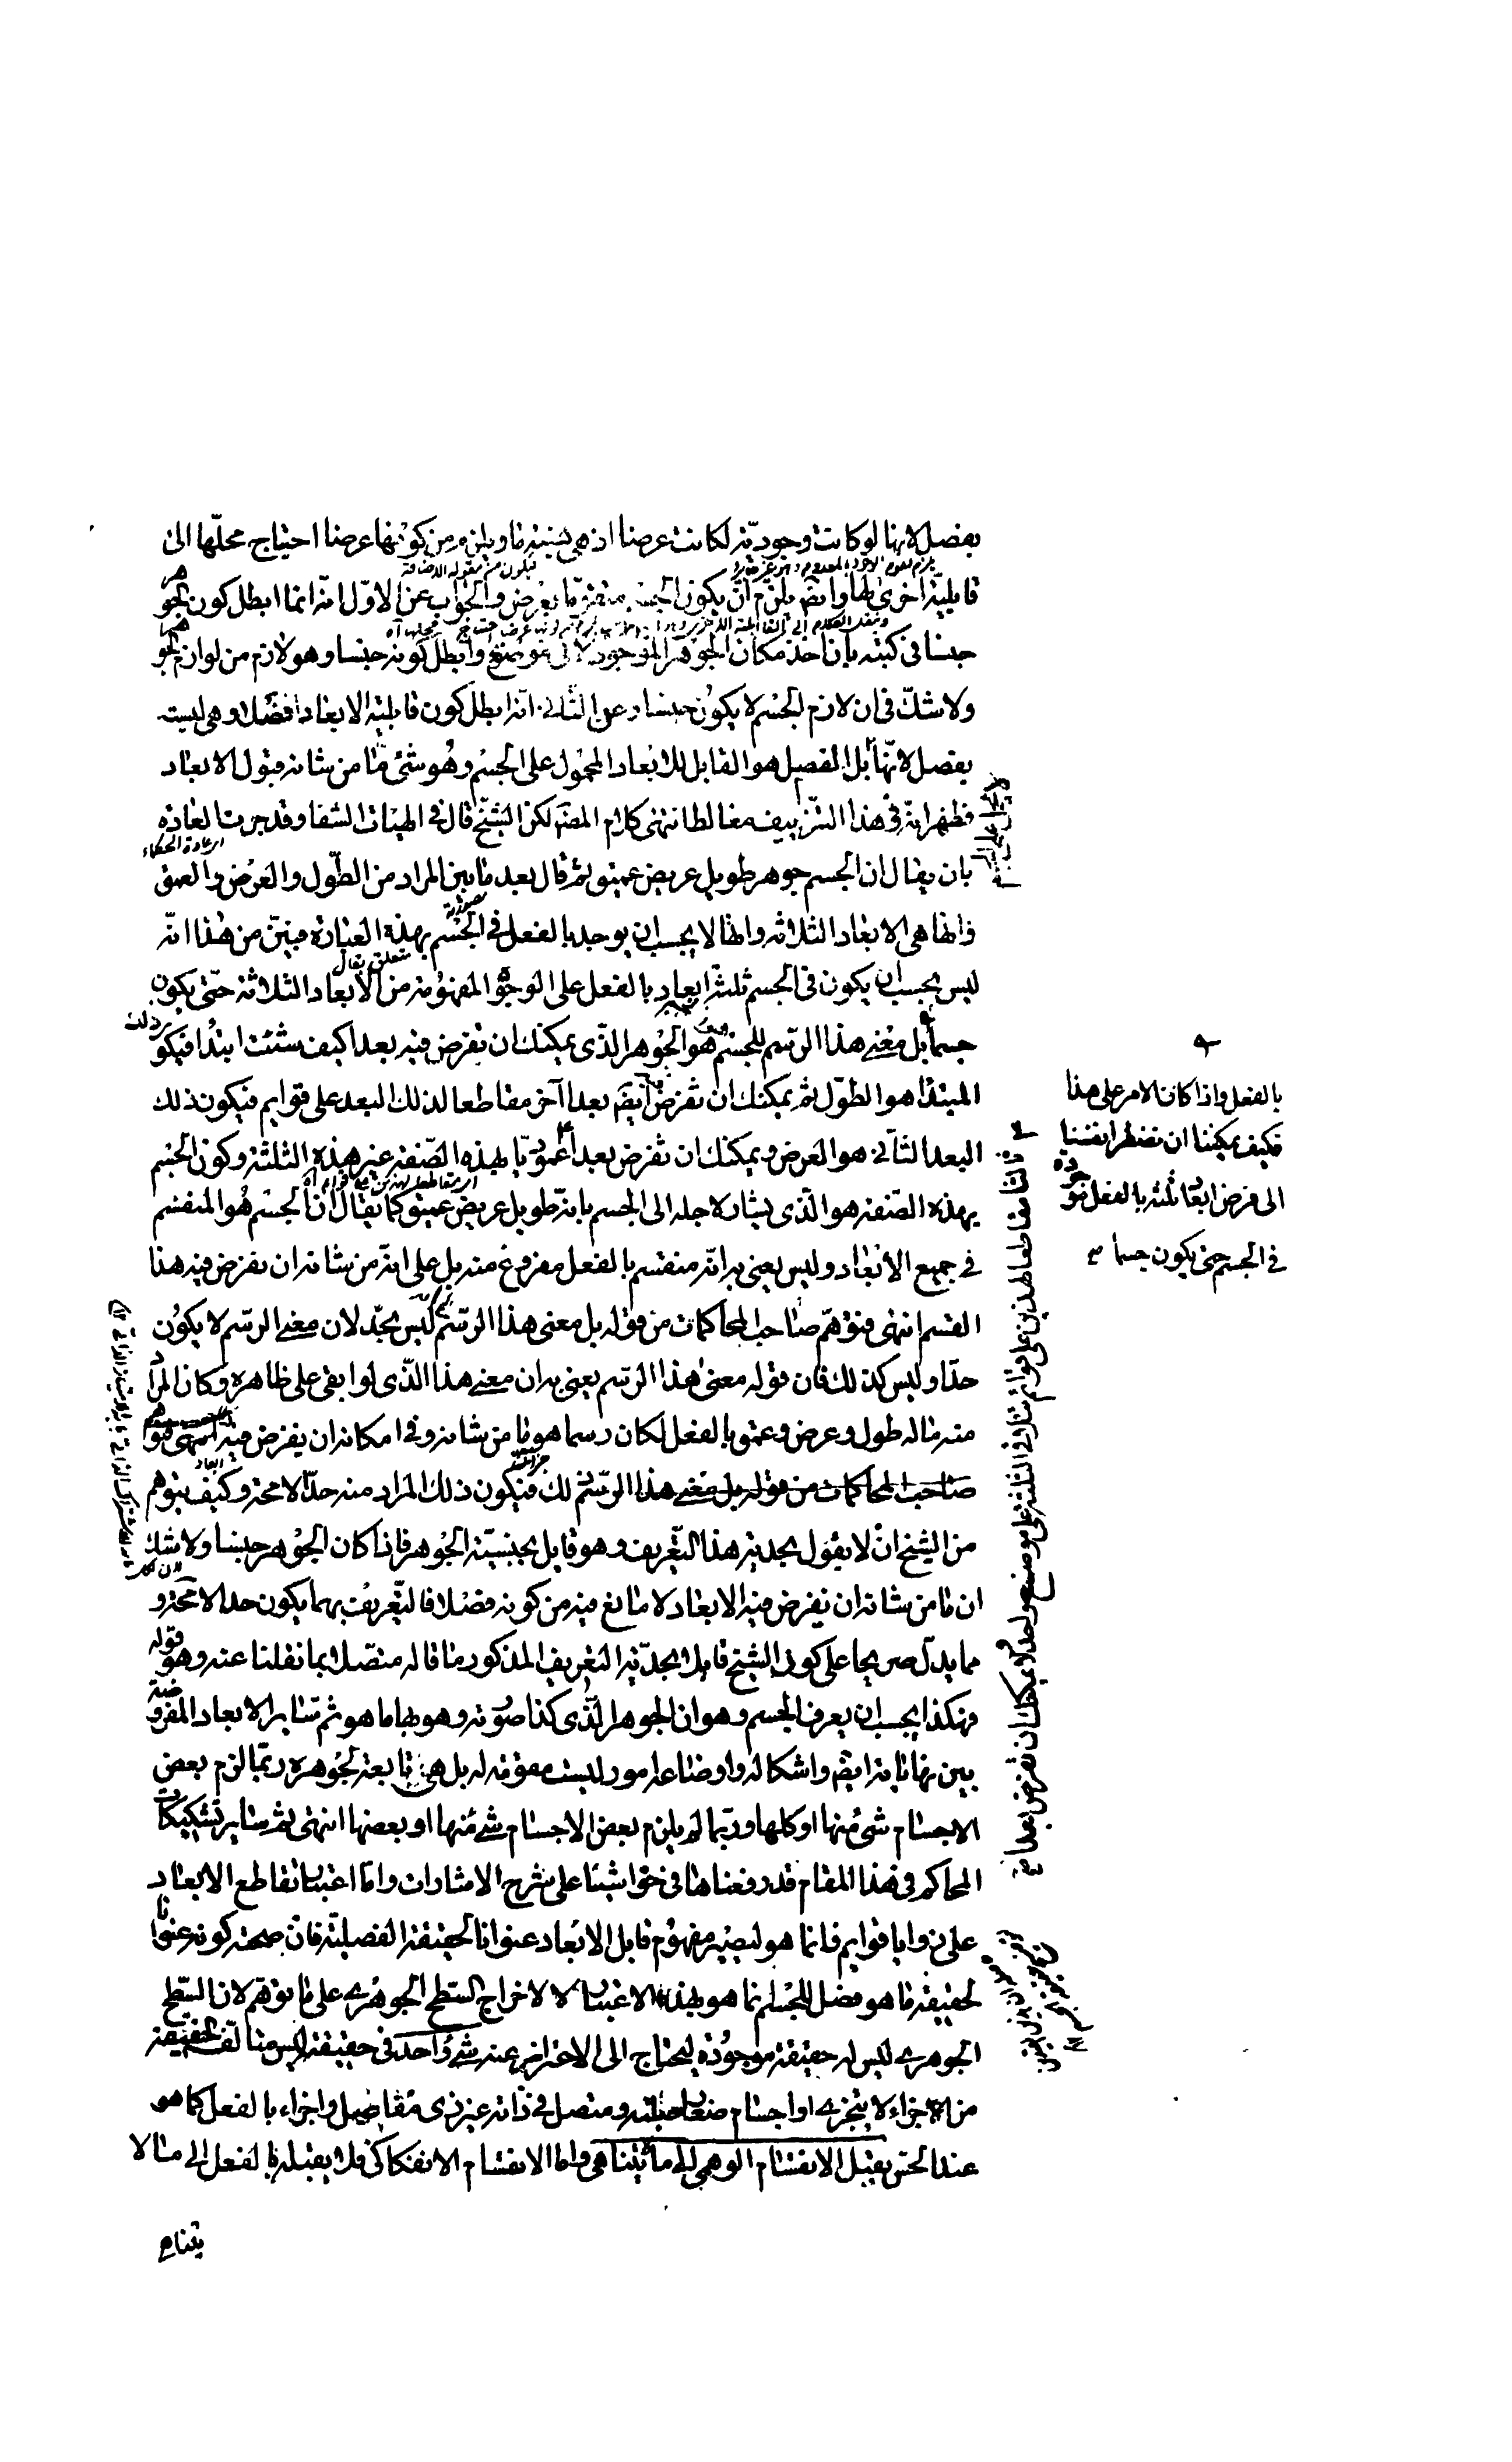 بفصل لانها لو كانت وجوديّة لكانت عرضا اذ هي نسبة ما ويلزم من كونها عرضا احتياج محلّها الى
قابليّة اخرى لها وايضًا يلزم ان يكون الجسم متقوّما بعرض والجواب عن الاوّل انّه انما ابطل كون الجوهر
جنسا في كتبه بان اخذ مكان الجوهر الموجود لا في موضوع وابطل كونه جنسا وهو لازم من لوازم الجوهر
ولا شكّ في ان لازم الجنس لا يكون جنسا وعن الثاني انه ابطل كون قابلية الابعاد فصلا وهي ليست
بفصل لانّها بل الفصل هو القابل للابعاد المحمول على الجسم وهو شئ مّا من شانه قبول الابعاد
فظهر انه في هذا التزييف مغالط انتهى كلام المصنّف لكن الشيخ قال في الهيات الشفا وقد جرت العادة
اى عادة الحكماء
بان يقال ان الجسم جوهر طويل عريض عميق ثم قال بعد ما بين المراد من الطول والعرض والعمق
وانها هي الابعاد الثلاثة وانها لا يجب ان يوجد بالفعل في الجسم بهذه العبارة فبيّن من هذا انّه
متعلق بقال
ليس يجب ان يكون في الجسم ثلثة ابعاد بالفعل على الوجوه المفهومة من الابعاد الثلاثة حتى يكون
جسما بل معنى هذا الرسم للجسم هو الجوهر الذى يمكنك ان تفرض فيه بعدا كيف شئت ابتداء فيكون ذلك
المبتدأ هو الطول ثم يمكنك ان تفرض ايضًا بعدا آخر مقاطعا لذلك البعد على قوايم فيكون ذلك
البعد الثاني هو العرض ويمكنك ان تفرض بعدا عموديّا بهذه الصّفة غير هذه الثلثة وكون الجسم
بهذه الصّفة هو الّذى يشار لاجله الى الجسم بانّه طويل عريض عميق كما يقال ان الجسم هو المنقسم
في جميع الابعاد وليس يعنى به انّه منقسم بالفعل مفروغ منه بل على انّه من شانه ان يفرض فيه هذا
القسم انتهى فتوهّم صاحب المحاكمات من قوله بل معنى هذا الرسم ليس بحدّ لان معنى الرسم لا يكون
حدّا وليس كذلك فان قوله معنى هذا الرسم يعنى به ان معنى هذا الّذى لو ابقى على ظاهره وكان المراد
منه ما له طول وعرض وعمق بالفعل لكان رسما هو ما من شانه وفي امكانه ان يفرض فيه انتهى فتوهم
صاحب المحاكمات من قوله بل معنى هذا الرّسم لك فيكون ذلك المراد منه حدّا لا محة وكيف يتوهم
من الشيخ ان لا يقول بحدية هذا التعريف وهو قايل بجنسيّة الجوهر فاذا كان الجوهر جنسا ولا شك
ان ما من شانه ان يفرض فيه الابعاد لا مانع فيه من كونه فصلا فالتعريف بهما يكون حدا لا محة و
مما يدلّ صريحا على كون الشيخ قايلا بحدّية التعريف المذكور ما قاله متصلا بما نقلنا عنه وهو قوله
فهكذا يجب ان يعرف الجسم وهو ان الجوهر الّذى كذا صورته وهو بها ما هو ثم ساير الابعاد المفروضة
بين نهاياته ايضًا واشكاله واوضاعه امور ليست مقومة له بل هي تابعة لجوهره ربّما لزم بعض
الاجسام شئ منها او كلها وربّما لم يلزم بعض الاجسام شئ منها او بعضها انتهى ثم ساير تشكيكات
المحاكم في هذا المقام قد دفعناها في حواشينا على شرح الاشارات وامّا اعتبار تقاطع الابعاد
على زوايا قوايم فانما هو ليصير مفهوم قابل الابعاد عنوانا لحقيقة الفصليّة فان صحة كونه عنوانا
لحقيقة ما هو فصل للجسم انما هو بهذا الاعتبار لا لاخراج السّطح الجوهرى على ما توهّم لان السّطح
الجوهرى ليس له حقيقة موجودة ليحتاج الى الاحتراز عنه شئ واحد في حقيقته ليس متالّف الحقيقة
من الاجزاء لا يتجزى او اجسام صغار صلبة ومتصل في ذاته غير ذى مفاصل واجزاء بالفعل كما هو
عند الحسّ يقبل الانقسام الوهمى الى ما لا يتناهى واما الانقسام الانفكاكى فلا يقبله بالفعل الى ما لا
يتناهى
بالفعل واذا كان الامر على هذا
فكيف يمكننا ان نضطر انفسنا
الى فرض ابعاد ثلثة بالفعل موجودة
في الجسم حتى يكون جسما